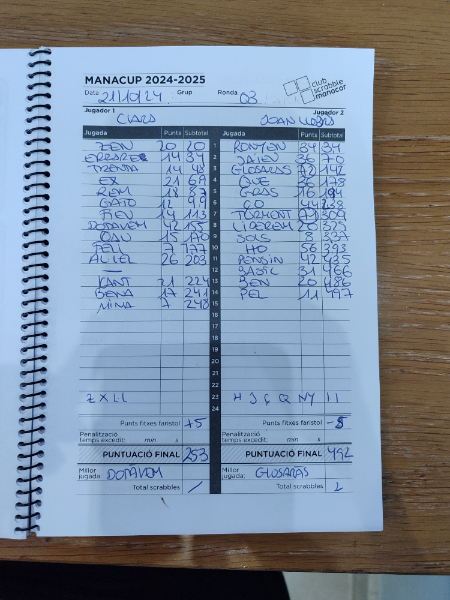 MANACUP 2024-2025
club scrabble manacor
Data 21/10/24 Grup Ronda 03
Jugador 1 Jugador 2
CLARA JOAN
Jugada Punts Subtotal Jugada Punts Subtotal
ZEN 20 20 1 RONYEN 34 34
14 34 2 36 70
TRENTA 14 48 3 GLOSARÀS 72 142
EX 21 69 4 QUE 36 178
18 87 5 16 194
GATO 12 99 6 ÇO 44 238
FIEN 14 113 7 TORMONT 71 309
DOPÀVEM 42 155 8 LIDEREM 20 329
15 170 9 SOLS 8 337
7 177 10 HO 56 393
26 203 11 PENSIN 42 435
— 12 BÀSIC 31 466
KANT 21 224 13 BEN 20 486
BENA 17 241 14 PEL 11 497
MINA 7 248 15
16
17
18
19
20
21
22
Z X L·L 23 H J Ç Q NY
24
Punts fitxes faristol +5 Punts fitxes faristol -5
Penalització temps excedit: min s Penalització temps excedit: min s
PUNTUACIÓ FINAL 253 PUNTUACIÓ FINAL 492
Millor jugada: DOPÀVEM Millor jugada: GLOSARÀS
Total scrabbles / Total scrabbles 1